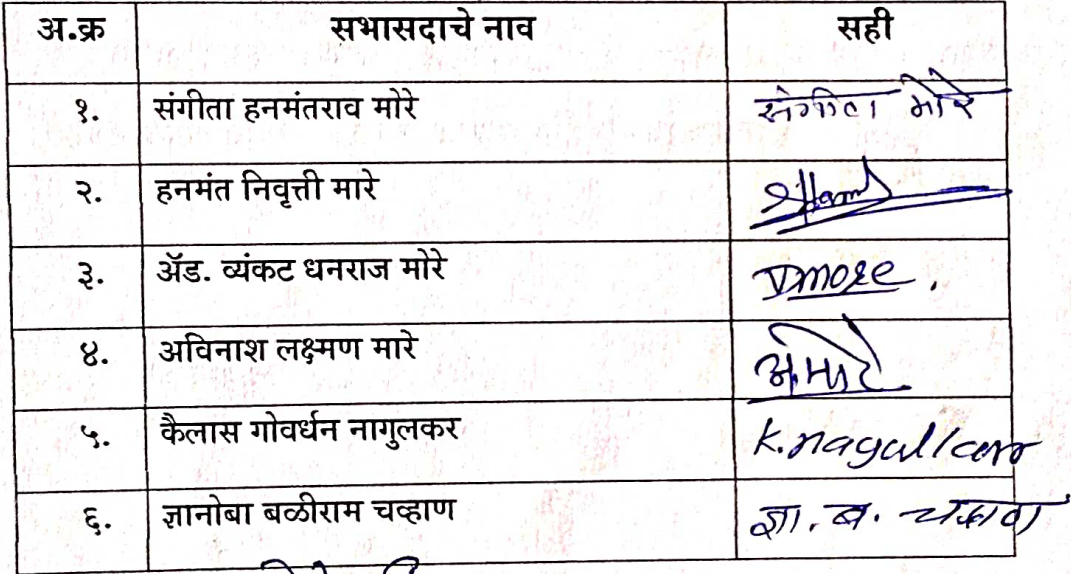 अ.क्र सभासदाचे नाव सही
१. संगीता हनमंतराव मोरे संगीता मोरे
२. हनमंत निवृत्ती मारे
३. ॲड. व्यंकट धनराज मोरे Vmore.
४. अविनाश लक्ष्मण मारे
५. कैलास गोवर्धन नागुलकर K.nagulkar
६. ज्ञानोबा बळीराम चव्हाण ज्ञा. ब. चव्हाण